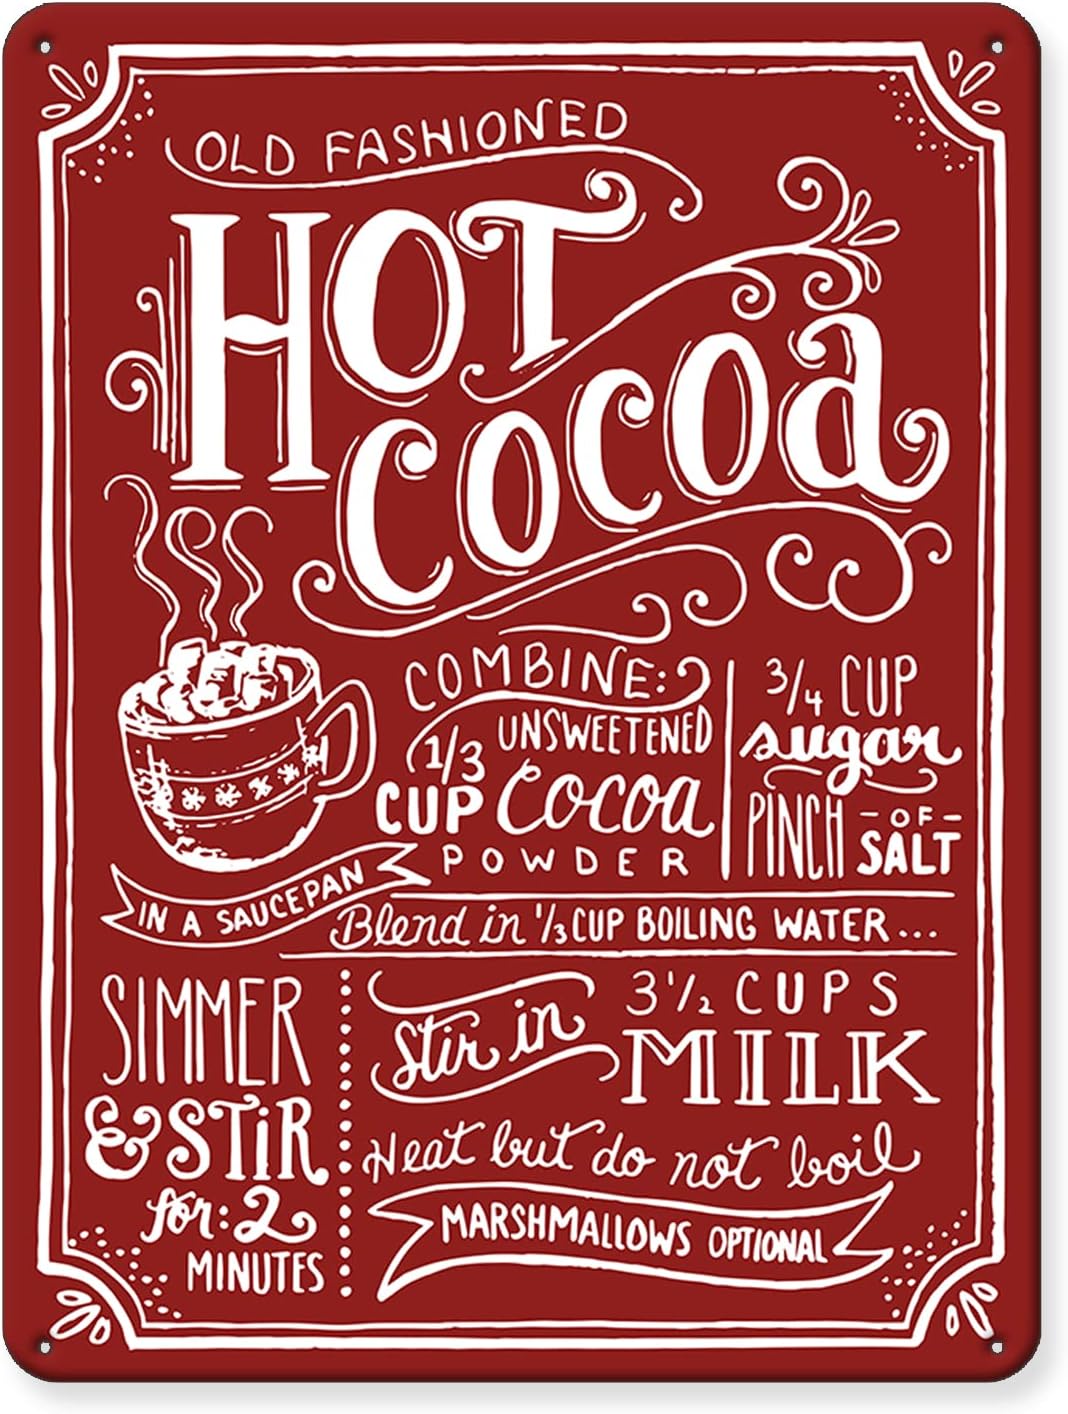 OLD FASHIONED
HOT
COCOA
COMBINE:
1/3 UNSWEETENED
CUP Cocoa
POWDER
3/4 CUP
sugar
PINCH -OF-
SALT
IN A SAUCEPAN
Blend in 1/3 CUP BOILING WATER...
SIMMER
& STIR
for: 2
MINUTES
Stir in 3 1/2 CUPS
MILK
Heat but do not boil
MARSHMALLOWS OPTIONAL